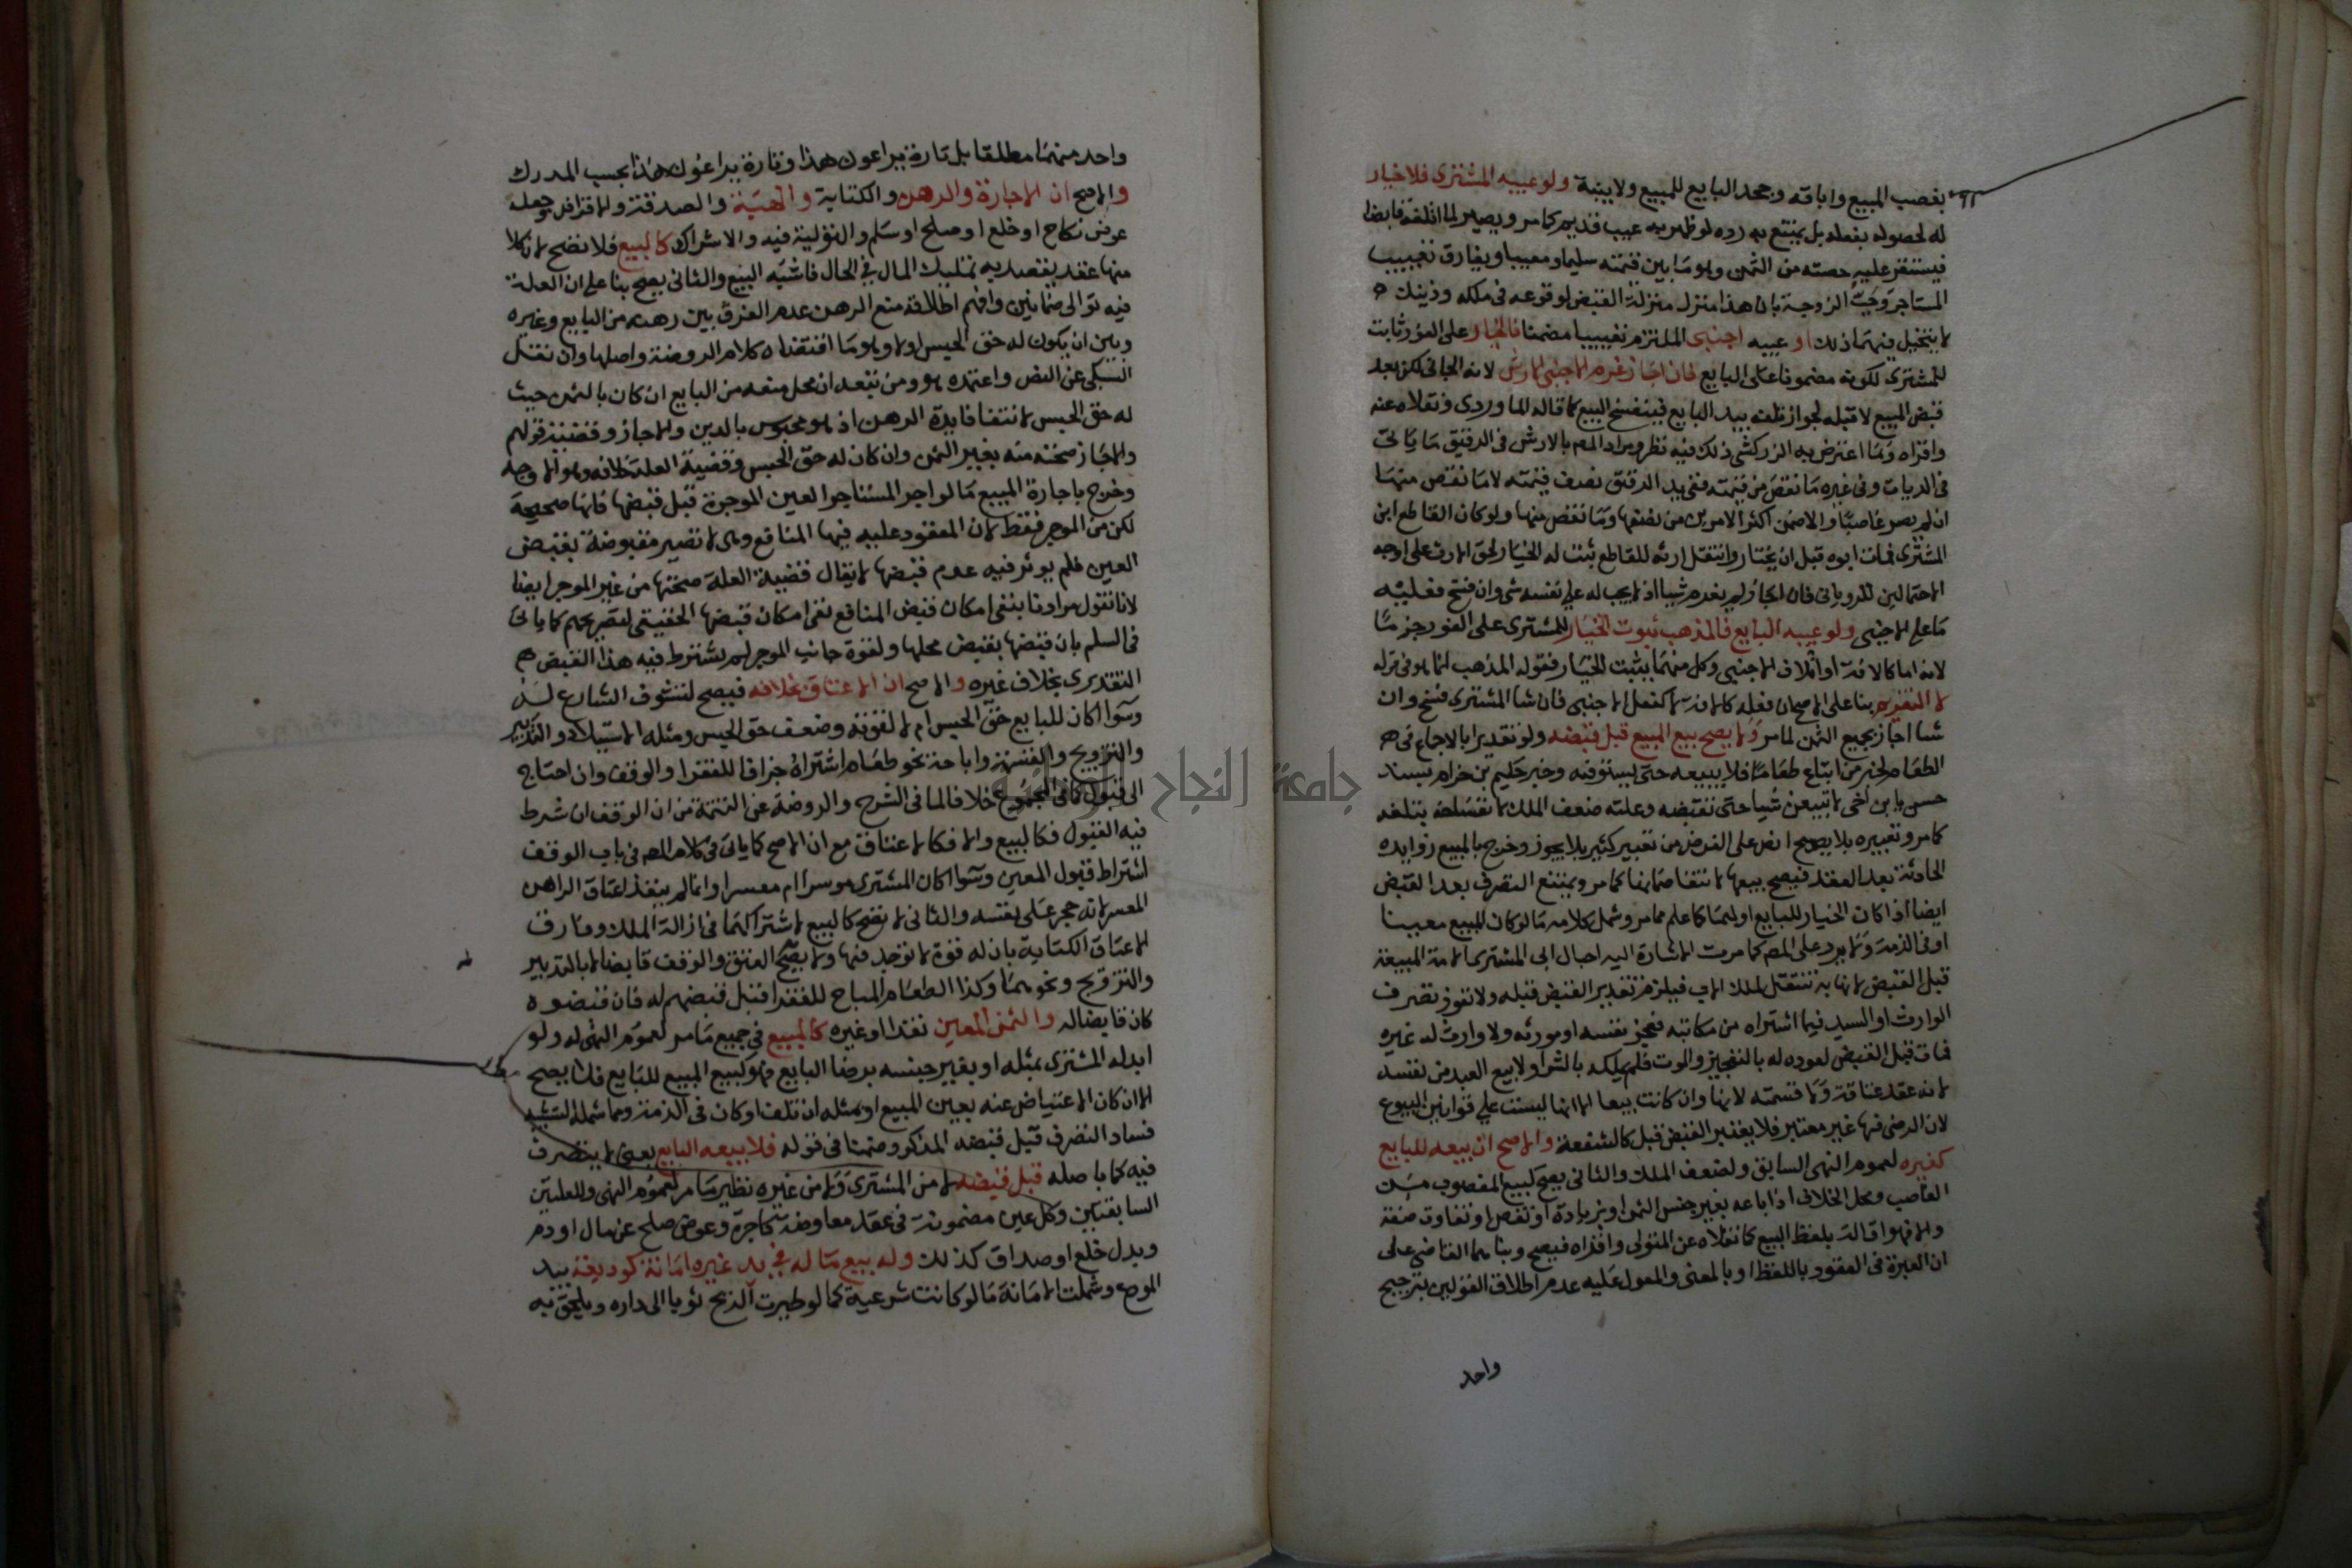 بغصب المبيع واباقه وجحد البايع للمبيع ولا بينة ولو عيبه المشترى فلا خيار
له لحصوله بفعله بل يمتنع به رده لو ظهر به عيب قديم كما مر ويصير لما اتلفه قابضا
فيستقر عليه حصته من الثمن وهو ما بين قيمته سليما ومعيبا ويفارق تعييب
المستاجر وجب الزوجة بان هذا منزل منزلة القبض لوقوعه فى ملكه وذينك
لا يتخيل فيهما ذلك او عيبه اجنبى الملتزم تعييبا مضمنا فالخيار على الفور ثابت
للمشترى لكونه مضمونا على البايع فان اجاز غرم الاجنبى الارش لانه الجانى لكن بعد
قبض المبيع لا قبله لجواز تلفه بيد البايع فينفسخ البيع كما قاله الماوردى ونقلاه عنه
واقراه وما اعترض به الزركشى ذلك فيه نظر ومراد المص بالارش فى الرقيق ما ياتى
فى الديات وفى غيره ما نقص من قيمته ففى يد الرقيق نصف قيمته لا ما نقص منهما
ان لم يصر غاصبا والا ضمن اكثر الامرين من نصفها وما نقص منها ولو كان القاطع ابن
المشترى فمات ابوه قبل ان يختار وانتقل ارثه للقاطع ثبت له الخيار لحق الارث على اوجه
الاحتمالين للرويانى فان اجاز لم يغرم شيا اذ لا يجب له على نفسه شى وان فسخ فعليه
ما على الاجنبى ولو عيبه البايع فالمذهب ثبوت الخيار للمشترى على الفور جزما
لانه اما كالافة او اتلاف الاجنبى وكل منهما يثبت الخيار فقوله المذهب انما هو فى قوله
لا التغريم بنا على الاصح ان فعله كالافة لا كفعل الاجنبى فان شا المشترى فسخ وان
شا اجاز بجميع الثمن لما مر ولا يصح بيع المبيع قبل قبضه ولو تقديرا بالاجماع فى
الطعام لخبر من ابتاع طعاما فلا يبيعه حتى يستوفيه وخبر حكيم بن حزام بسند
حسن يا بن اخى لا تبيعن شيا حتى تقبضه وعلته ضعف الملك لانفساخه بتلفه
كما مر وتعبيره بلا يصح انص على الغرض من تعبير كثير بلا يجوز وخرج بالمبيع زوايده
الحادثة بعد العقد فيصح بيعها لانتفا ضمانها كما مر ويمتنع التصرف بعد القبض
ايضا اذا كان الخيار للبايع او لهما كما علم مما مر وشمل كلامه ما لو كان المبيع معينا
او فى الذمة ولا يرد على المص كما مرت الاشارة اليه احبال ابى المشترى لامة المبيعة
قبل القبض لانها به تنتقل لملك الاب فيلزم تقدير القبض قبله ولا نفوذ تصرف
الوارث او السيد فيما اشتراه من مكاتبه فعجز نفسه او مورثه ولا وارث له غيره
فمات قبل القبض لعوده له بالتعجيز والموت فلم يملكه بالشرا ولا بيع العبد من نفسه
لانه عقد عتاقة ولا قسمته لانها وان كانت بيعا الا انها ليست على قوانين البيوع
لان الرضى فيها غير معتبر فلا يعتبر القبض قبل كالشفعة والاصح ان بيعه للبايع
كغيره لعموم النهى السابق ولضعف الملك والثانى يصح كبيع المغصوب من
الغاصب ومحل الخلاف اذا باعه بغير جنس الثمن او بزيادة او نقص او تفاوت صفة
والا فهو اقالة بلفظ البيع كما نقلاه عن المتولى واقراه فيصح وبناهما القاضى على
ان العبرة فى العقود باللفظ او بالمعنى والمعول عليه عدم اطلاق القولين بترجيح
واحد
واحد منهما مطلقا بل تارة يراعون هذا وتارة يراعون هذا بحسب المدرك
والاصح ان الاجارة والرهن والكتابة والهبة والصدقة والاقراض وجعله
عوض نكاح او خلع او صلح او سلم والتولية فيه والاشراك كالبيع فلا تصح لان كلا
منها عقد يقصد به تمليك المال فى الحال فاشبه البيع والثانى يصح بنا على ان العلة
فيه توالى ضمانين وافهم اطلاقه منع الرهن عدم الفرق بين رهنه من البايع وغيره
وبين ان يكون له حق الحبس اولا وهو ما اقتضاه كلام الروضة واصلها وان نقل
السبكى عن النص واعتمده هو ومن تبعه ان محل منعه من البايع ان كان بالثمن حيث
له حق الحبس لانتفا فايدة الرهن اذ هو محبوس بالدين والا جاز وقضية قولهم
والا جاز صحته منه بغير الثمن وان كان له حق الحبس وقضية العلة خلافه وهو الاوجه
وخرج باجارة المبيع ما لو اجر المستاجر العين الموجرة قبل قبضها فانها صحيحة
لكن من الموجر فقط لان المعقود عليه فيها المنافع وهى لا تصير مقبوضة بقبض
العين فلم يوثر فيه عدم قبضها لا يقال قضية العلة صحتها من غير الموجر ايضا
لانا نقول مرادنا بنفى امكان قبض المنافع نفى امكان قبضها الحقيقى لتصريحهم كما ياتى
فى السلم بان قبضها بقبض محلها ولقوة جانب الموجر لم يشترط فيه هذا القبض
التقديرى بخلاف غيره والاصح ان الاعتاق بخلافه فيصح لتشوف الشارع له
وسوا اكان للبايع حق الحبس ام لا لقوته وضعف حق الحبس ومثله الاستيلاد والتدبير
والتزويج والقسمة واباحة نحو طعام اشتراه جزافا للفقرا والوقف وان احتاج
الى قبول كما فى المجموع خلافا لما فى الشرح والروضة عن التتمة من ان الوقف ان شرط
فيه القبول فكالبيع والا فكالاعتاق مع ان الاصح كما ياتى فى كلام المص فى باب الوقف
اشتراط قبول المعين وسوا اكان المشترى موسرا ام معسرا وانما لم ينفذ اعتاق الراهن
المعسر لانه حجر على نفسه والثانى لا يصح كالبيع لاشتراكهما فى ازالة الملك وفارق
الاعتاق الكتابة بان له قوة لا توجد فيها ولا يصح العتق والوقف قابضا لا بالتدبير
والتزويج ونحوهما وكذا الطعام المباح للفقرا قبل قبضهم له فان قبضوه
كان قابضا له والثمن المعين نقدا او غيره كالمبيع فى جميع ما مر لعموم النهى له ولو
ابدله المشترى بمثله او بغير جنسه برضا البايع فهو كبيع المبيع للبايع فلا يصح
الا ان كان الاعتياض عنه بعين المبيع او بمثله ان تلف او كان فى الذمة
فساد التصرف قبل قبضه المذكور ضمنا فى قوله فلا يبيعه البايع يعنى لا يتصرف
فيه كما باصله قبل قبضه لا من المشترى ولا من غيره نظير ما مر لعموم النهى وللعلتين
السابقتين وكل عين مضمونة فى عقد معاوضة كاجرة وعوض صلح عن مال او دم
وبدل خلع او صداق كذلك وله بيع ما له فى يد غيره امانة كوديعة بيد
المودع وشملت الامانة ما لو كانت شرعية كما لو طيرت الريح ثوبا الى داره ويلحق به
جامعة النجاح الوطنية